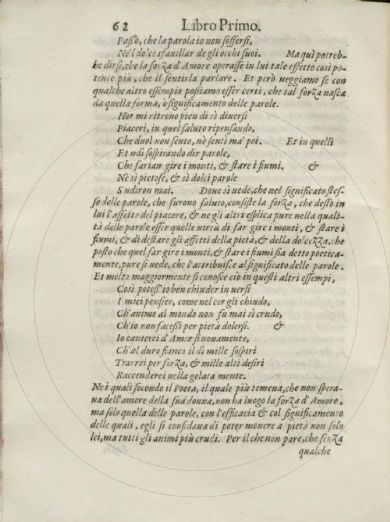 62 Libro Primo.
Passò, che la parola io non soffersi,
Nè'l dolce sfauillar de gli occhi suoi. Ma qui potreb-
be dirsi, che la forza d'Amore operasse in lui tale effetto così po-
tente più, che il sentirla parlare. Et però ueggiamo se con
qualche altro essempio possiamo esser certi, che tal forza nasca
da quella forma, ò significamento delle parole.
Hor mi ritrouo pieu di sì diuersi
Piaceri, in quel saluto ripensando,
Che duol non sento, nè sentì ma' poi. Et in quelli
Et udì sospirando dir parole,
Che farian gire i monti, & stare i fiumi. &
Nè sì pietose, & sì dolci parole
S'udiron mai. Doue sì uede, che nel significato stes-
so delle parole, che furono saluto, consiste la forza, che destò in
lui l'affetto del piacere, & ne gli altri esplica pure nella quali-
tà delle parole esser quelle uirtù di far gire i monti, & stare i
fiumi, & di destare gli affetti della pietà, & della dolcezza. che
posto che quel far gire i monti, & stare i fiumi sia detto poetica-
mente, pure si uede, che l'attribuisce al significato delle parole.
Et molto maggiormente si conosce ciò in questi altri essempi,
Così potess'io ben chiuder in uersi
I miei pensier, come nel cor gli chiudo,
Ch'animo al mondo non fu mai sì crudo,
Ch'io non facessi per pietà dolersi. &
Io canterei d'Amor sì nouamente,
Ch'al duro fianco il dì mille sospiri
Trarrei per forza, & mille alti desiri
Raccenderei nella gelata mente.
Ne i quali secondo il Poeta, il quale più temeua, che non spera-
ua dell'amore della sua donna, non ha luogo la forza d'Amore,
ma solo quella delle parole, con l'efficacia & col significamento
delle quali, egli si confidaua di poter mouere a pietà non solo
lei, ma tutti gli animi più crudi. Per il che non pare, che senza
qualche